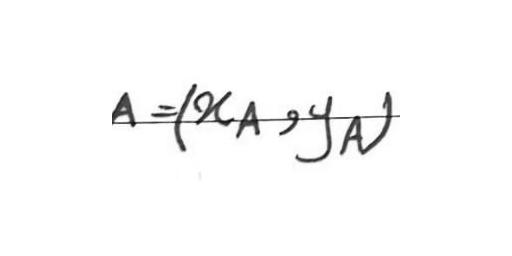 A = (x_A, y_A)